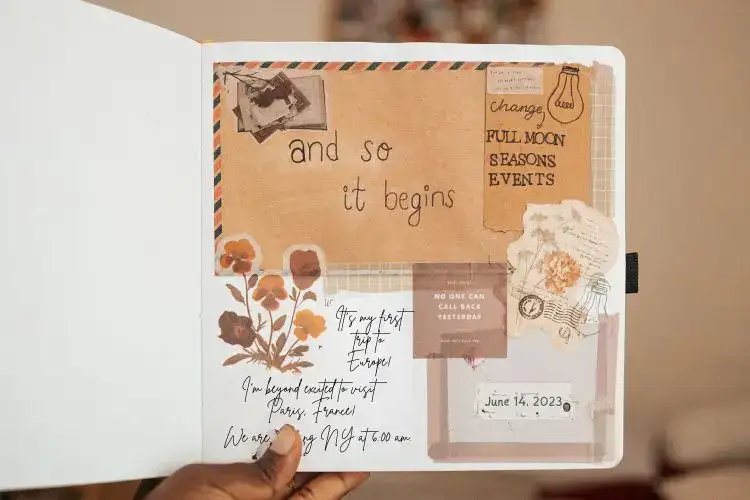 and so
it begins
change
FULL MOON
SEASONS
EVENTS
NO ONE CAN
CALL BACK
YESTERDAY
It's my first
trip to
Europe!
I'm beyond excited to visit
Paris, France!
We are NY at 6:00 am
June 14, 2023